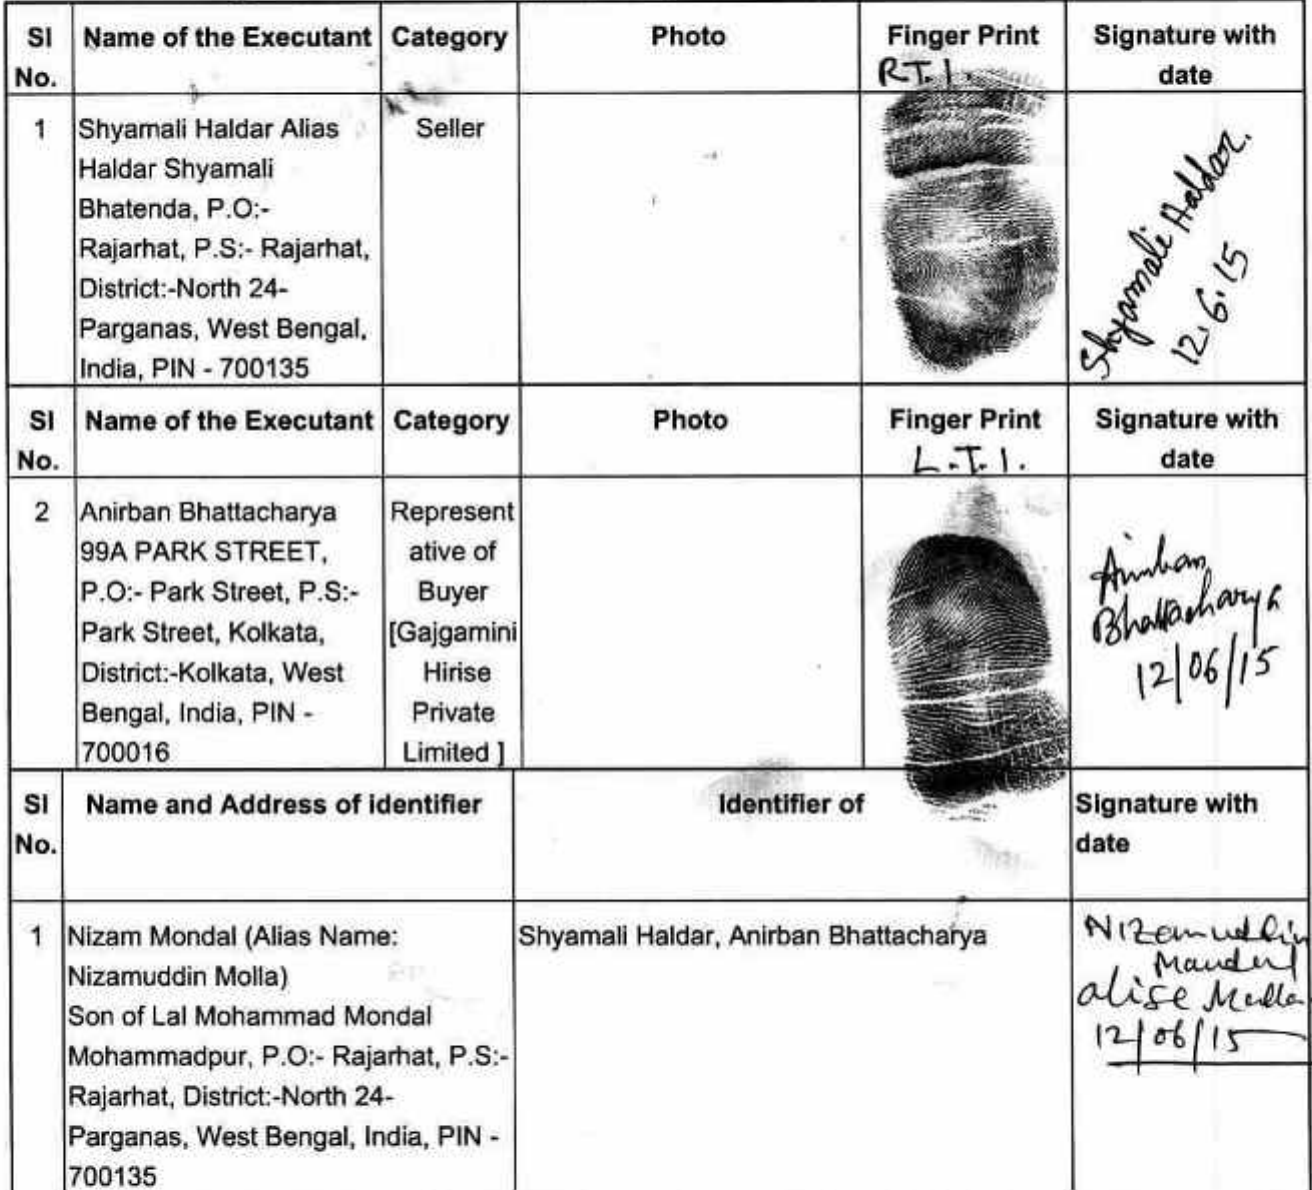 Sl No. Name of the Executant Category Photo Finger Print Signature with date
R.T.I.
1 Shyamali Haldar Alias
Haldar Shyamali
Bhatenda, P.O:-
Rajarhat, P.S:- Rajarhat,
District:-North 24-
Parganas, West Bengal,
India, PIN - 700135
Seller
Shyamali Haldar.
12.6.15
Sl No. Name of the Executant Category Photo Finger Print Signature with date
L.T.I.
2 Anirban Bhattacharya
99A PARK STREET,
P.O:- Park Street, P.S:-
Park Street, Kolkata,
District:-Kolkata, West
Bengal, India, PIN -
700016
Represent
ative of
Buyer
[Gajgamini
Hirise
Private
Limited ]
Anirban
Bhattacharya
12/06/15
Sl No. Name and Address of identifier Identifier of Signature with date
1 Nizam Mondal (Alias Name:
Nizamuddin Molla)
Son of Lal Mohammad Mondal
Mohammadpur, P.O:- Rajarhat, P.S:-
Rajarhat, District:-North 24-
Parganas, West Bengal, India, PIN -
700135
Shyamali Haldar, Anirban Bhattacharya
Nizamuddin
alise
12/06/15